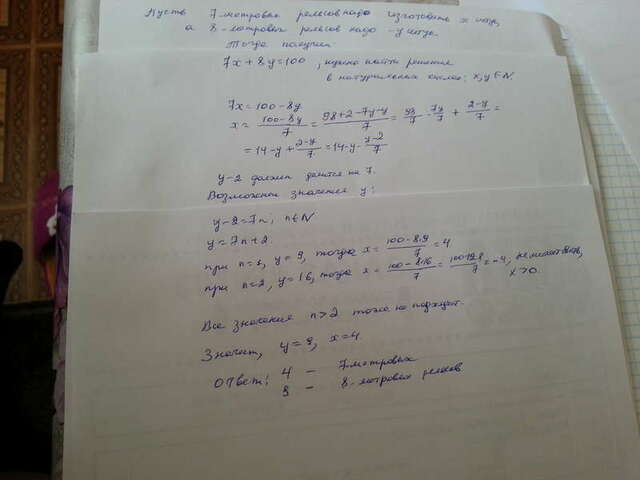 Пусть 7-метровых рельсов надо изготовить x штук,
а 8-метровых рельсов надо - y штук.
Тогда получим
7x + 8y = 100, нужно найти решение
в натуральных числах: x,y ∈ N.
7x = 100 - 8y
x = (100-8y)/7 = (98+2-7y-y)/7 = 98/7 - 7y/7 + (2-y)/7 =
= 14 - y + (2-y)/7 = 14 - y - (y-2)/7
y-2 должен делится на 7.
Возможные значения y:
y-2=7n; n∈N
y = 7n+2
при n=1, y=9, тогда x = (100-8·9)/7 = 4
при n=2, y=16, тогда x = (100-8·16)/7 = (100-128)/7 = -4,
x>0.
Все значения n>2 тоже не подходят.
Значит, y=9, x=4.
Ответ: 4 - 7-метровых
9 - 8-метровых рельсов